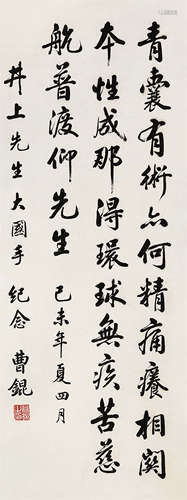 青囊有術亦何精痛癢相関
本性成那得環球無疾苦慈
航普渡仰先生 己未年夏四月
井上先生大國手 紀念 曹錕